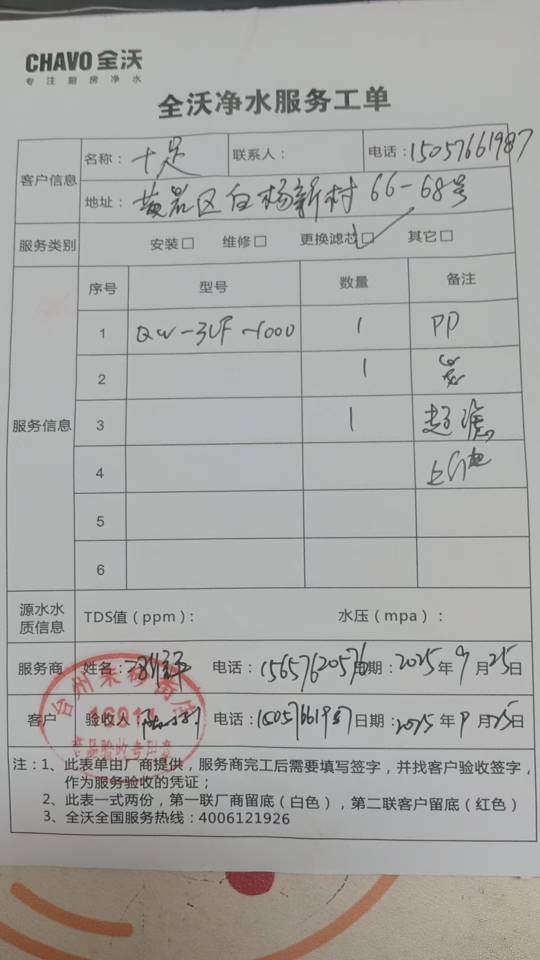 CHAVO 全沃
专注厨房净水
全沃净水服务工单
客户信息
名称：十足 联系人： 电话：15057661987
地址：黄岩区白杨新村66-68号
服务类别 安装□ 维修□ 更换滤芯☑ 其它□
服务信息
序号 型号 数量 备注
1 QW-3UF-1000 1 PP
2 1
3 1 超滤
4 上门费
5
6
源水水质信息 TDS值（ppm）： 水压（mpa）：
服务商 姓名： 电话：15657620576 日期：2025年9月25日
客户 验收人： 电话：15057661987 日期：2025年9月25日
注：1、此表单由厂商提供，服务商完工后需要填写签字，并找客户验收签字，
作为服务验收的凭证；
2、此表一式两份，第一联厂商留底（白色），第二联客户留底（红色）
3、全沃全国服务热线：4006121926